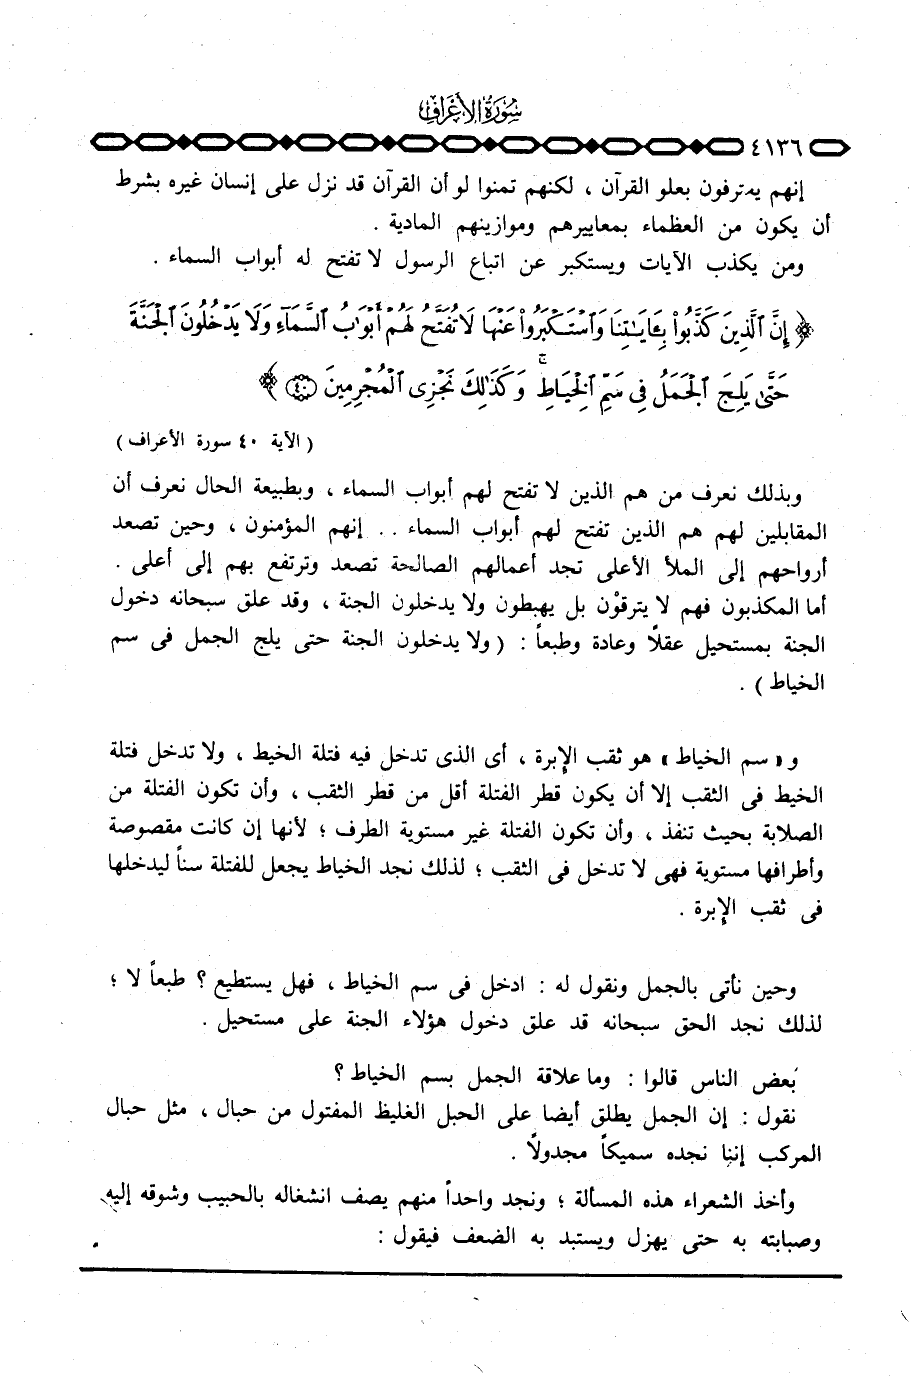 سورة الأعراف
٤١٣٦
إنهم يعترفون بعلو القرآن ، لكنهم تمنوا لو أن القرآن قد نزل على إنسان غيره بشرط
أن يكون من العظماء بمعاييرهم وموازينهم المادية .
ومن يكذب الآيات ويستكبر عن اتباع الرسول لا تفتح له أبواب السماء .
﴿ إِنَّ ٱلَّذِينَ كَذَّبُوا۟ بِـَٔايَـٰتِنَا وَٱسْتَكْبَرُوا۟ عَنْهَا لَا تُفَتَّحُ لَهُمْ أَبْوَٰبُ ٱلسَّمَآءِ وَلَا يَدْخُلُونَ ٱلْجَنَّةَ
حَتَّىٰ يَلِجَ ٱلْجَمَلُ فِى سَمِّ ٱلْخِيَاطِ ۚ وَكَذَٰلِكَ نَجْزِى ٱلْمُجْرِمِينَ ٤٠ ﴾
( الآية ٤٠ سورة الأعراف )
وبذلك نعرف من هم الذين لا تفتح لهم أبواب السماء ، وبطبيعة الحال نعرف أن
المقابلين لهم هم الذين تفتح لهم أبواب السماء .. إنهم المؤمنون ، وحين تصعد
أرواحهم إلى الملأ الأعلى تجد أعمالهم الصالحة تصعد وترتفع بهم إلى أعلى .
أما المكذبون فهم لا يترقوْن بل يهبطون ولا يدخلون الجنة ، وقد علق سبحانه دخول
الجنة بمستحيل عقلاً وعادة وطبعاً : ( ولا يدخلون الجنة حتى يلج الجمل فى سم
الخياط ) .
و « سم الخياط » هو ثقب الإبرة ، أى الذى تدخل فيه فتلة الخيط ، ولا تدخل فتلة
الخيط فى الثقب إلا أن يكون قطر الفتلة أقل من قطر الثقب ، وأن تكون الفتلة من
الصلابة بحيث تنفذ ، وأن تكون الفتلة غير مستوية الطرف ؛ لأنها إن كانت مقصوصة
وأطرافها مستوية فهى لا تدخل فى الثقب ؛ لذلك نجد الخياط يجعل للفتلة سناً ليدخلها
فى ثقب الإبرة .
وحين نأتى بالجمل ونقول له : ادخل فى سم الخياط ، فهل يستطيع ؟ طبعاً لا ؛
لذلك نجد الحق سبحانه قد علق دخول هؤلاء الجنة على مستحيل .
بعض الناس قالوا : وما علاقة الجمل بسم الخياط ؟
نقول : إن الجمل يطلق أيضا على الحبل الغليظ المفتول من حبال ، مثل حبال
المركب إننا نجده سميكاً مجدولاً .
وأخذ الشعراء هذه المسألة ؛ ونجد واحداً منهم يصف انشغاله بالحبيب وشوقه إليه
وصبابته به حتى يهزل ويستبد به الضعف فيقول :